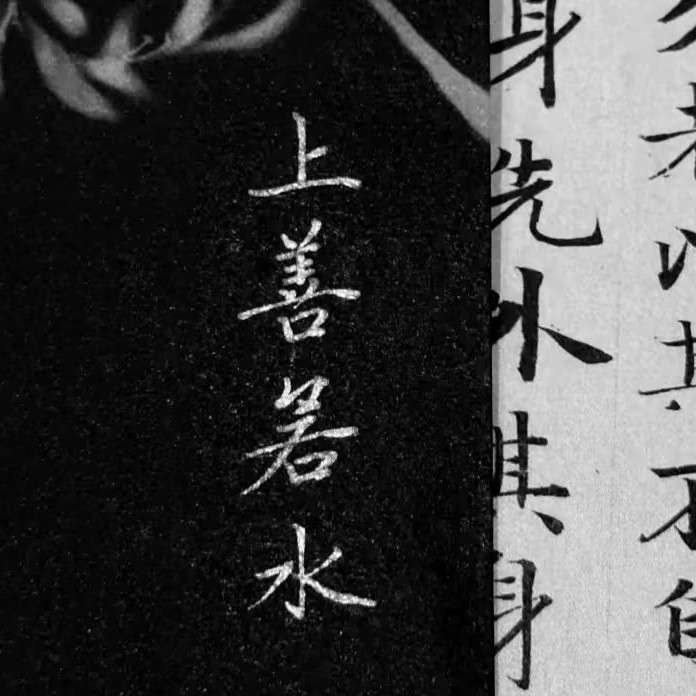 久者以其不自
身先外其身
上善若水